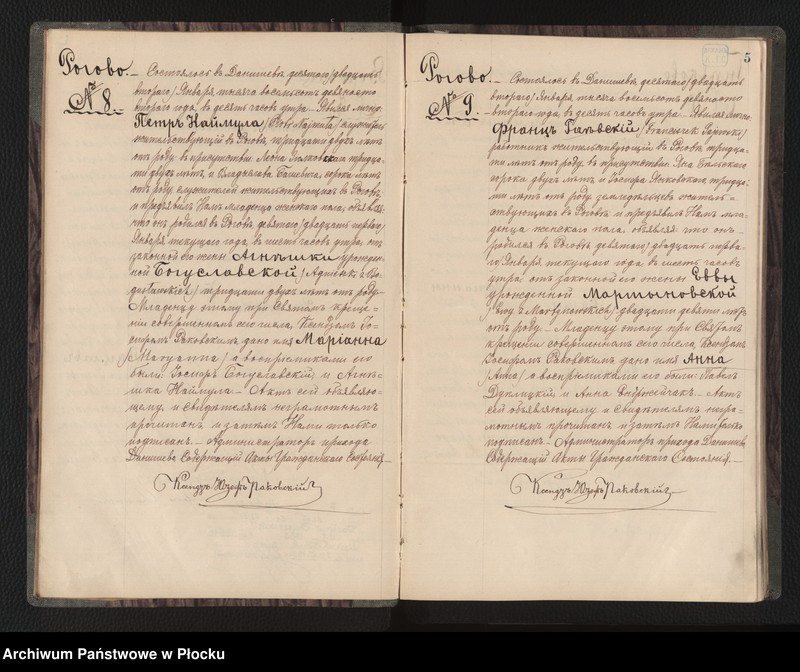 Рогово.
№ 8.
Состоялось въ Данишевѣ десятаго /двадцать
втораго/ Января тысяча восемьсотъ девяносто
втораго года, въ десять часовъ утра. Явился лично
Петръ Наймула / Piotr Najmuła / служитель
жительствующій въ Роговѣ, тридцати двухъ лѣтъ
отъ роду, въ присутствіи Леона
ти двухъ лѣтъ, и сорока лѣтъ
отъ роду служителей жительствующихъ въ Роговѣ
и предъявилъ Намъ Младенца женскаго пола, объявляя
что онъ родился въ Роговѣ девятаго /двадцать перваго/
Января текущаго года, въ шесть часовъ утра, отъ
законной его жены Агнѣшки урожден-
ной Богуславской /
тридцати двухъ лѣтъ отъ роду.
Младенцу этому при Святомъ креще-
ніи совершенномъ сего числа, Ксендзомъ Іо-
сифомъ Раковскимъ, дано имя Маріанна
/ Maryanna / а воспріемниками его
были: Іосифъ Богуславскій и Агнѣ-
шка Наймула. — Актъ сей объявляю-
щему и свидѣтелямъ неграмотнымъ
прочитанъ и затѣмъ Нами только
подписанъ. — Администраторъ прихода
Данишевъ Содержащій Акты Гражданскаго Состоянія. —
Ксендзъ Юзефъ Раковскій
5
Рогово.
№ 9.
Состоялось въ Данишевѣ десятаго /двадцать
втораго/ Января тысяча восемьсотъ девяносто
втораго года, въ десять часовъ утра. Явился лично
Францъ / Franciszek
работникъ жительствующій въ Роговѣ тридца-
ти лѣтъ отъ роду, въ присутствіи Яна
сорока двухъ лѣтъ, и Іосифа Янковскаго тридца-
ти лѣтъ отъ роду земледѣльцевъ житель-
ствующихъ въ Роговѣ и предъявилъ Намъ мла-
денца женскаго пола объявляя что онъ
родился въ Роговѣ девятаго /двадцать перва-
го/ Января текущаго года въ шесть часовъ
утра, отъ законной его жены Еввы
урожденной Мартыновской
/ Ewy z Martynowskich / двадцати девяти лѣтъ
отъ роду. — Младенцу этому при Святомъ
крещеніи совершенномъ сего числа, Ксендзомъ
Іосифомъ Раковскимъ, дано имя Анна
/ Anna / а воспріемниками его были: Павелъ
и Анна Ендржейчакъ. — Актъ
сей объявляющему и свидѣтелямъ негра-
мотнымъ прочитанъ и затѣмъ Нами только
подписанъ. — Администраторъ прихода Данишевъ
Содержащій Акты Гражданскаго Состоянія. —
Ксендзъ Юзефъ Раковскій
Archiwum Państwowe w Płocku